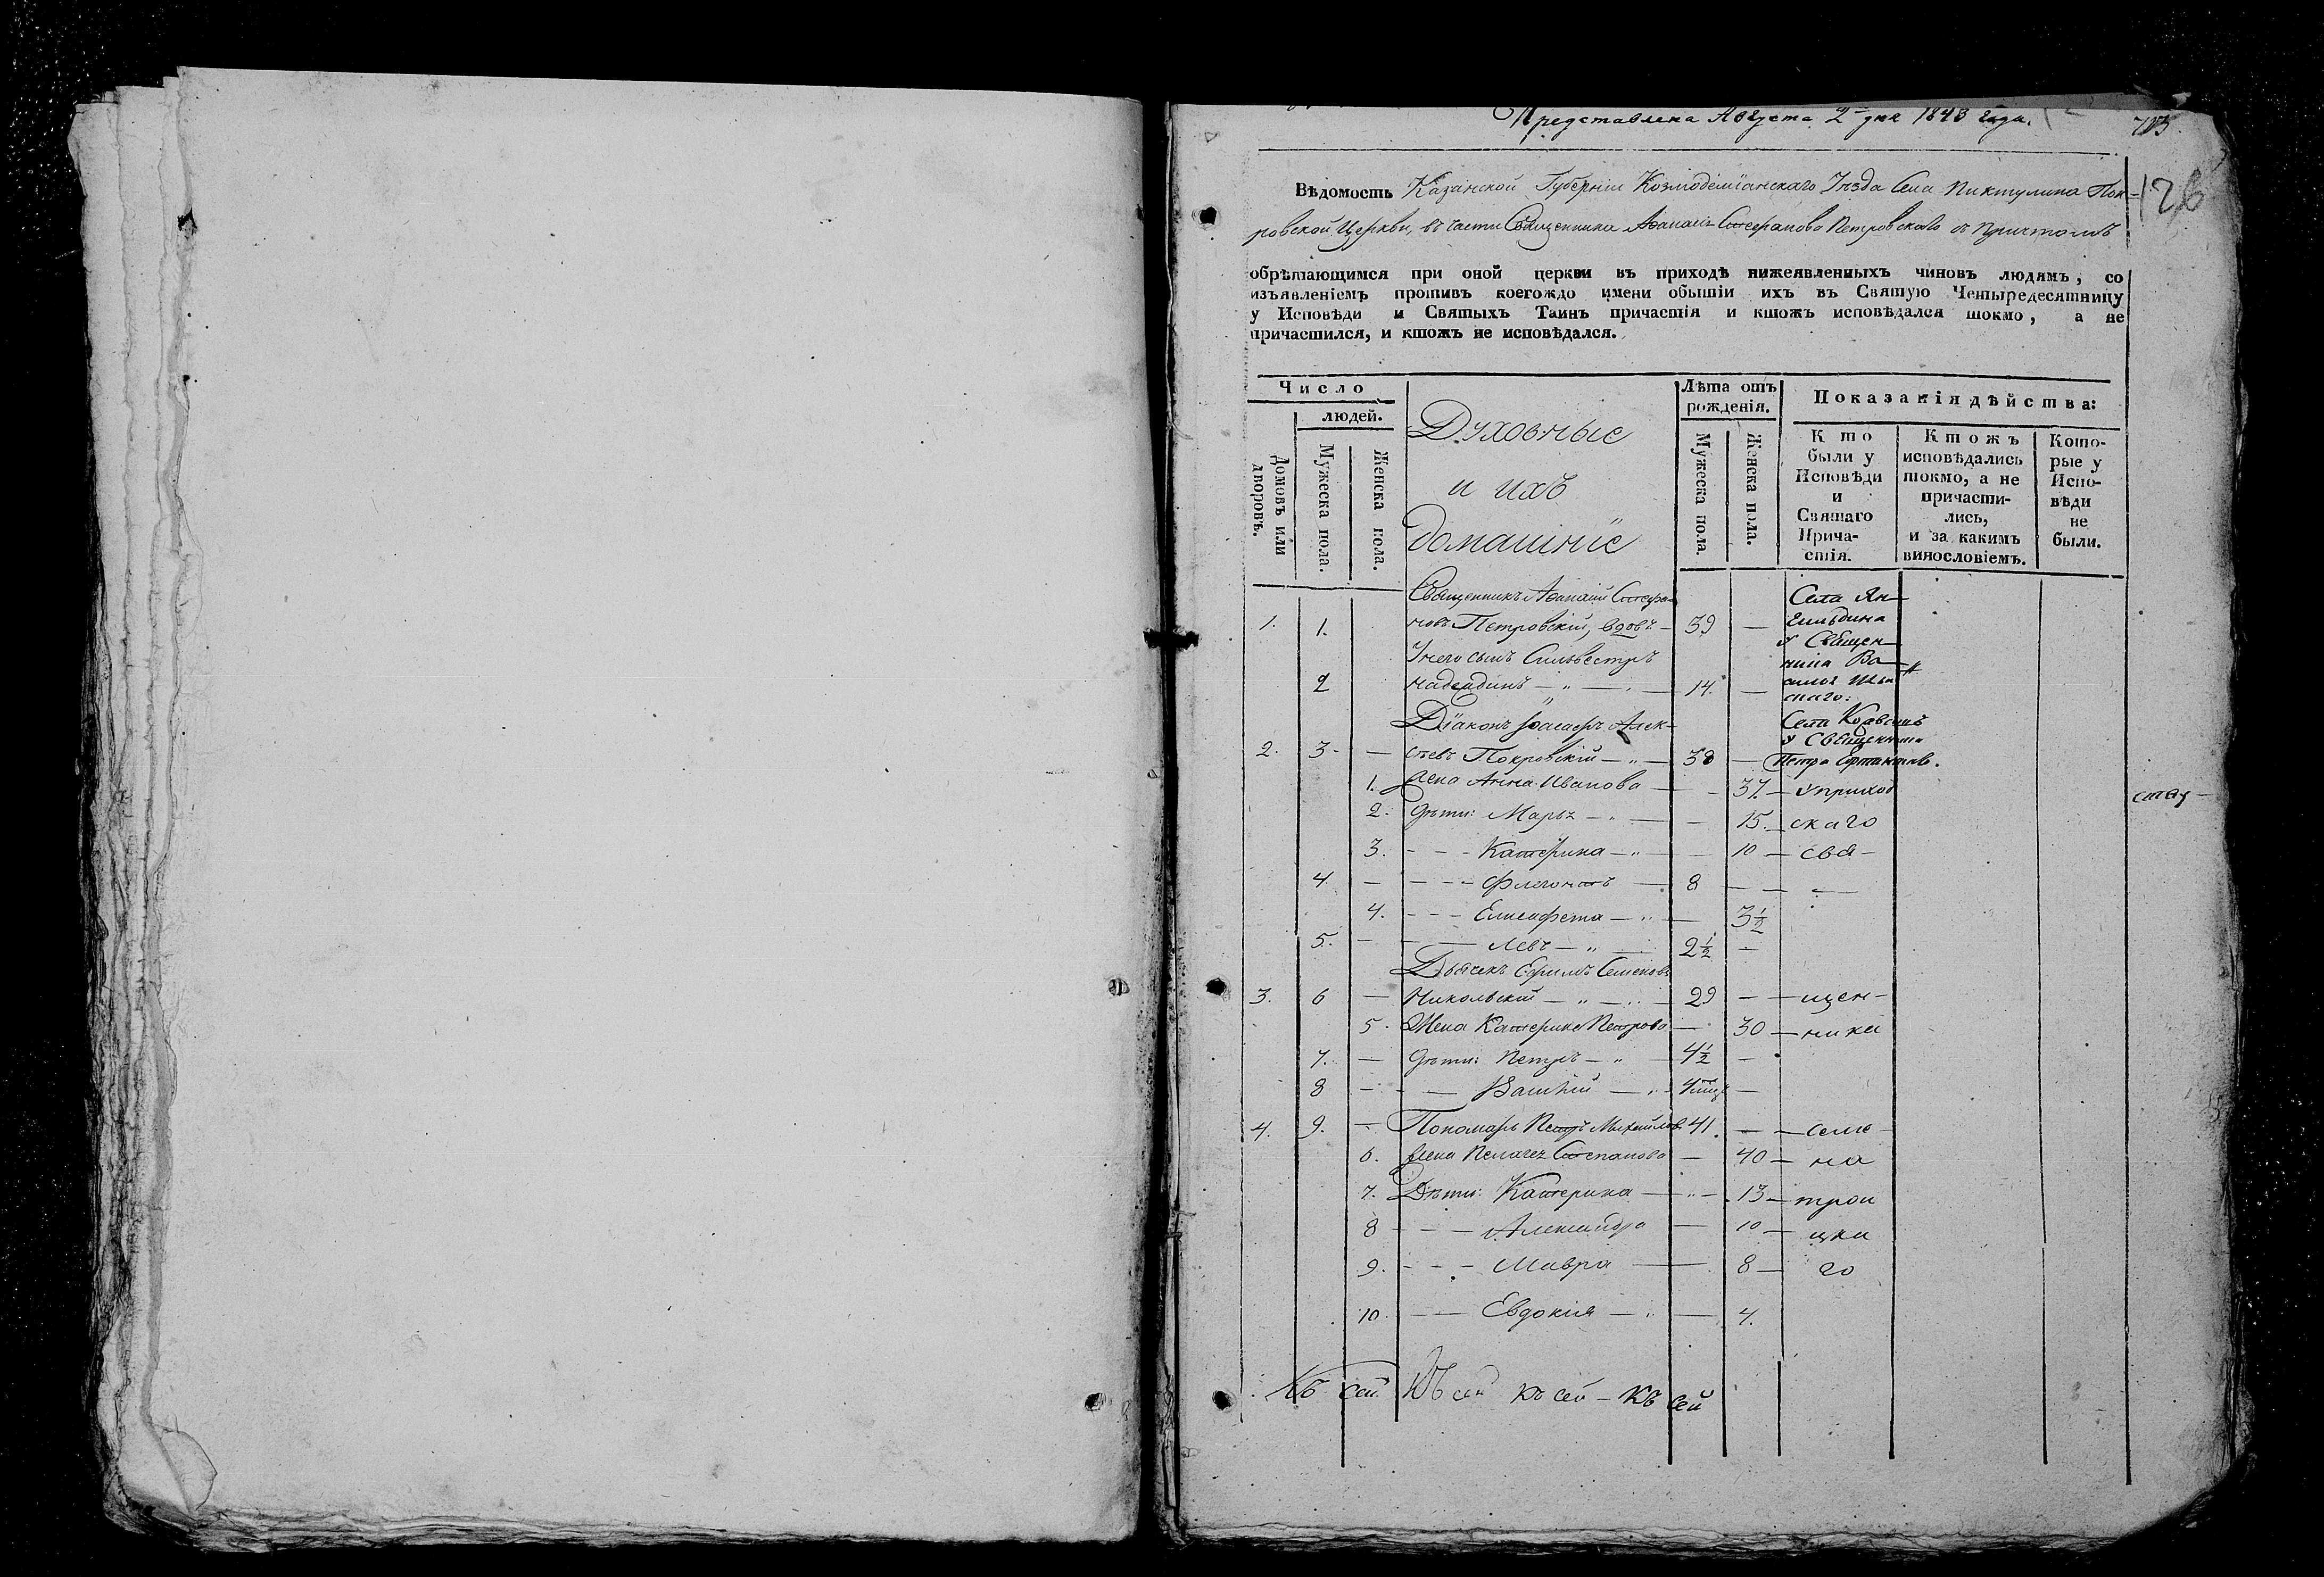 Представлена Августа 2 дня 1843 года.
126
Вѣдомость Казанской Губерніи Козмодемьянскаго Уѣзда Села Пиктулина Пок-
ровской Церкви, въ части Священника Аѳанасія Стефанова Петровскаго съ Причтомъ
обрѣтающимся при оной церкви въ приходѣ нижеявленныхъ чиновъ людямъ, со
изъявленіемъ противъ коегождо имени обытіи ихъ въ Святую Четыредесятницу
у Исповѣди и Святыхъ Таинъ причастія и ктожъ исповѣдался токмо, а не
причастился, и ктожъ не исповѣдался.
Число
людей.
Домовъ или дворовъ.
Мужеска пола.
Женска пола.
Духовные
и ихъ
домашніе
Лѣта отъ
рожденія.
Мужеска пола.
Женска пола.
Показанія дѣйства:
Кто
были у
Исповѣди
и
Святаго
Прича-
стія.
Ктожъ
исповѣдались
токмо, а не
причасти-
лись,
и за какимъ
винословіемъ.
Кото-
рые у
Испо-
вѣди
не
были.
Священникъ Аѳанасій Стефа-
1. 1. новъ Петровскій, вдовъ - 59 — Села Ян-
гильдина
у Священ-
ника Ва-
У него сынъ Сильвестръ
2 Надеждинъ — " — 14. —
Діаконъ Алек- Села
у Священника
2. 3 - — сѣевъ Покровскій — " — 38 — Петра
1. Жена Анна Иванова — - 37 — У приход
2. Дѣти: Марья — " — - 15. — скаго
3. - - - Катерина — " — - 10 — свя-
4. — - - - Флегонтъ — 8 — —
4. - - - Елисафета — " — 3½
5. — — Левъ — " — 2½ —
Дьячекъ Ефимъ Семеновъ
3. 6 — Никольскій — " — 29 — — щен-
5. Жена Катерина Петрова — 30 — ника
7. — Дѣти: Петръ — " 4½ —
8 — — Василій — " —
4. 9. — Пономарь Петръ Михайлов. 41. — — Семе
6. Жена Пелагея Степанова — 40 — на
7. Дѣти: Катерина — " — 13 — трои
8 - — Александра — 10 — цка
9. - - - Мавра — 8 — го
10. — — Евдокія — " — 4.
Къ сей Къ сей Къ сей — Къ сей